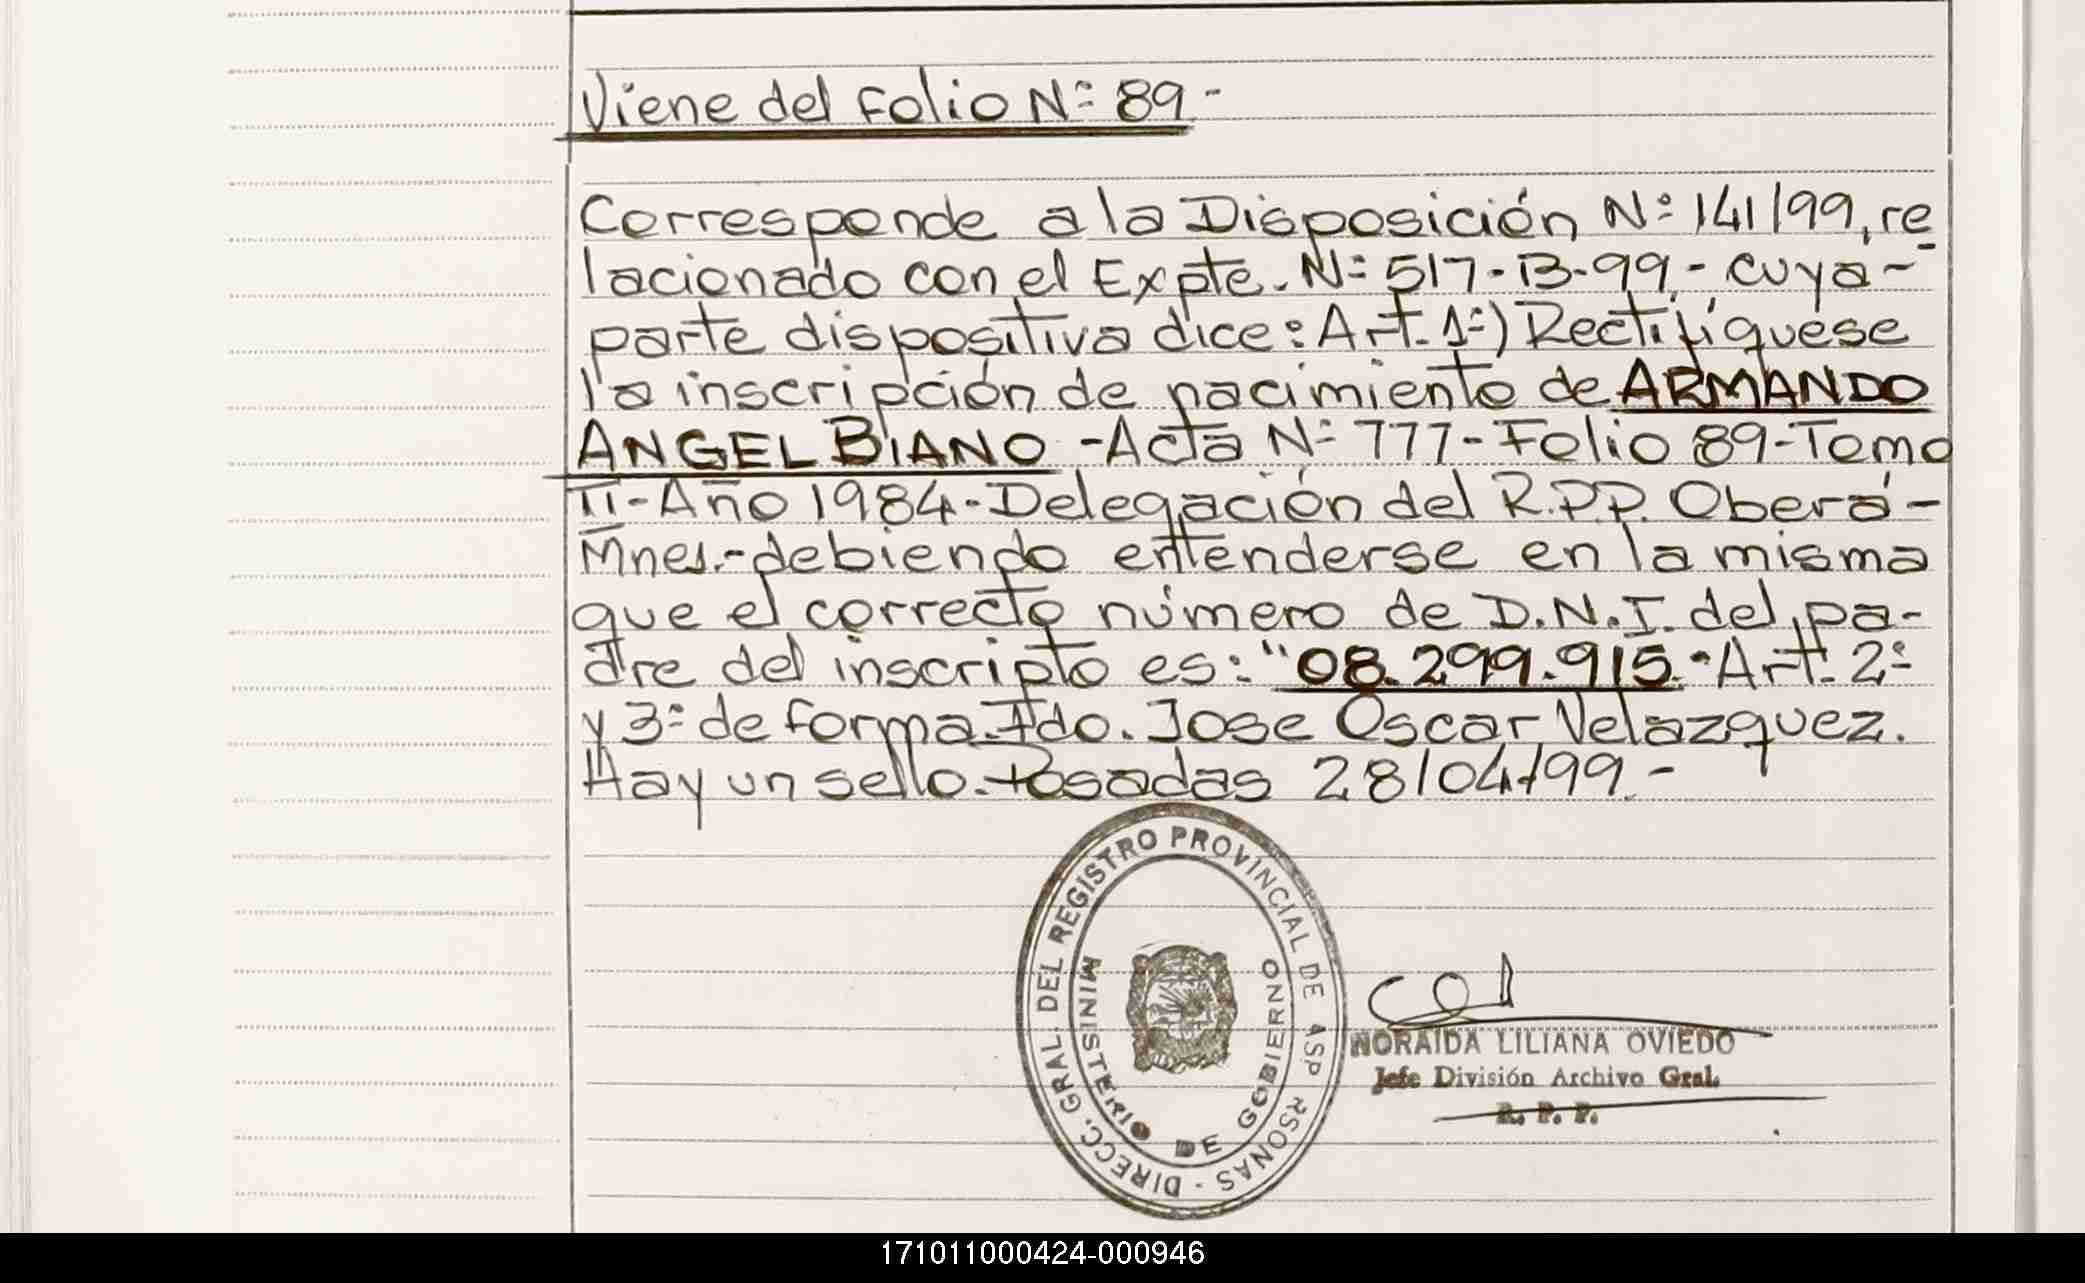 Viene del Folio Nº 89-
Corresponde a la Disposición Nº 141/99, re
lacionado con el Expte. Nº 517-B-99.- cuya-
parte dispositiva dice: Art. 1º) Rectifíquese
la inscripción de nacimiento de ARMANDO
ANGEL BIANO -Acta Nº 777- Folio 89-Tomo
II-Año 1984-Delegación del R.P.P. Oberá-
Mnes.-debiendo entenderse en la misma
que el correcto número de D.N.I. del pa-
dre del inscripto es: "08.299.915.-Art. 2º
y 3º de forma. Fdo. Jose Oscar Velazquez.
Hay un sello. Posadas 28/04/99.-
DIRECC. GRAL. DEL REGISTRO PROVINCIAL DE RSONAS -
MINISTERIO DE GOBIERNO
NORAIDA LILIANA OVIEDO
Jefe División Archivo Gral.
R. P. P.
171011000424-000946